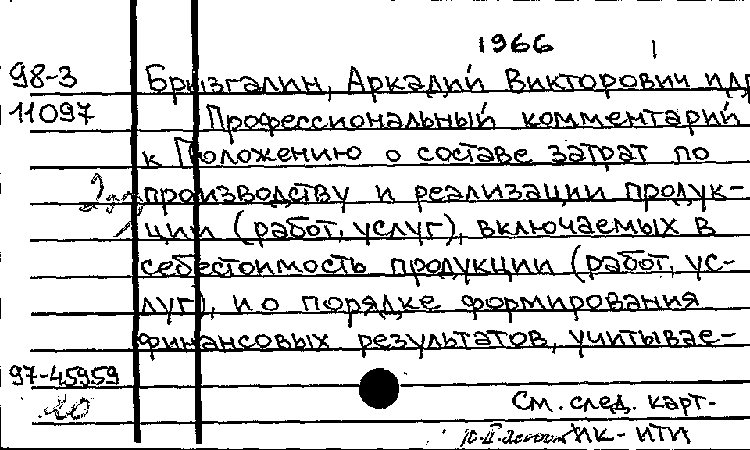 1966
98-3 Брызгалин, Аркадий Викторович и др
11097 Профессиональный комментарий
к Положению о составе затрат по
производству и реализации продук-
ции (работ, услуг), включаемых в
себестоимость продукции (работ, ус-
луг), и о порядке формирования
финансовых результатов, учитывае-
97-45959
20
См. след. карт-
ИК-ИТИ